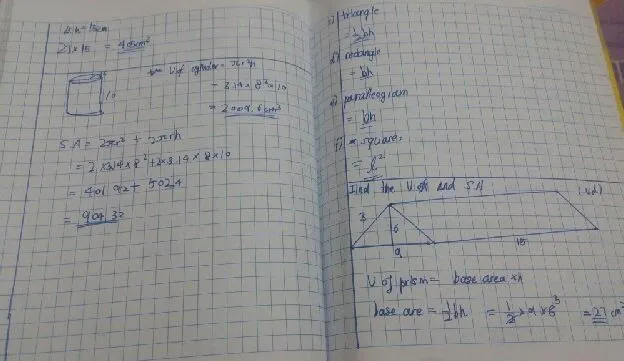 h = 15cm
27 x 15 = 405cm³
10
V of cylinder = πr²h
= 3.14 x 8² x 10
= 2009.6cm³
S A = 2πr² + 2πrh
= 2 x 3.14 x 8² + 2 x 3.14 x 8 x 10
= 401.92 + 502.4
= 904.32
triangle
= ½bh
rectangle
= bh
parallelogram
= bh
square
= l²
Find the V of and SA
3
6
9
15
V of prism = base area x h
base are = ½bh = ½ x 9 x 6 3 = 27 cm²